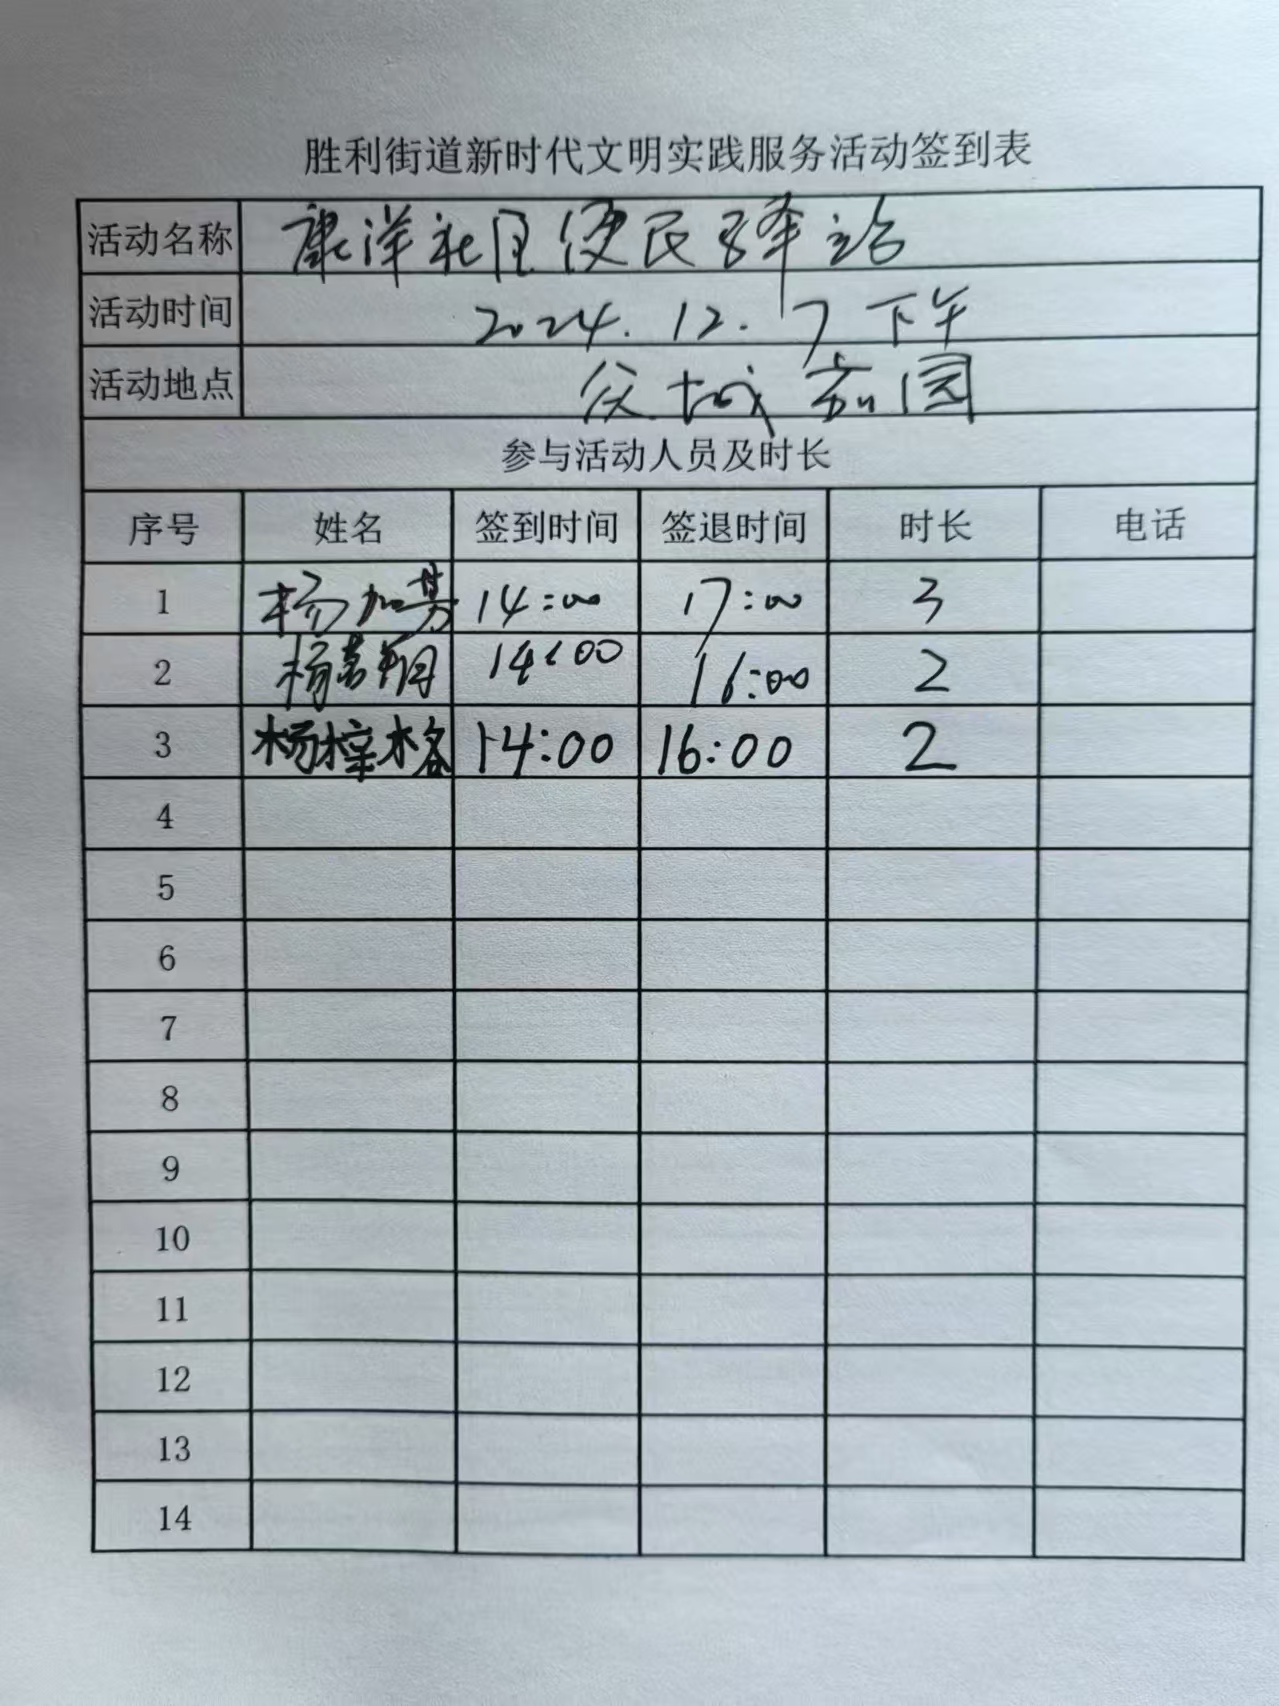 胜利街道新时代文明实践服务活动签到表
活动名称 康洋社区便民驿站
活动时间 2024.12.7下午
活动地点 城嘉园
参与活动人员及时长
序号 姓名 签到时间 签退时间 时长 电话
1 杨加 14:00 17:00 3
2 杨 14:00 16:00 2
3 杨梓榕 14:00 16:00 2
4
5
6
7
8
9
10
11
12
13
14